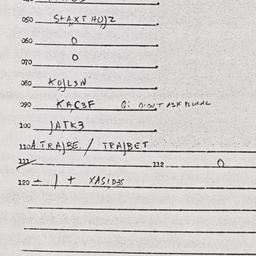 050 StAXT HOJZ
060 0
070 0
080 KOJL3N
090 KAC3F Q: DIDN'T ASK PLURAL
100 JATK3
110 A TRAJBE / TRAJBET
111 112 0
120 - | + XASID35